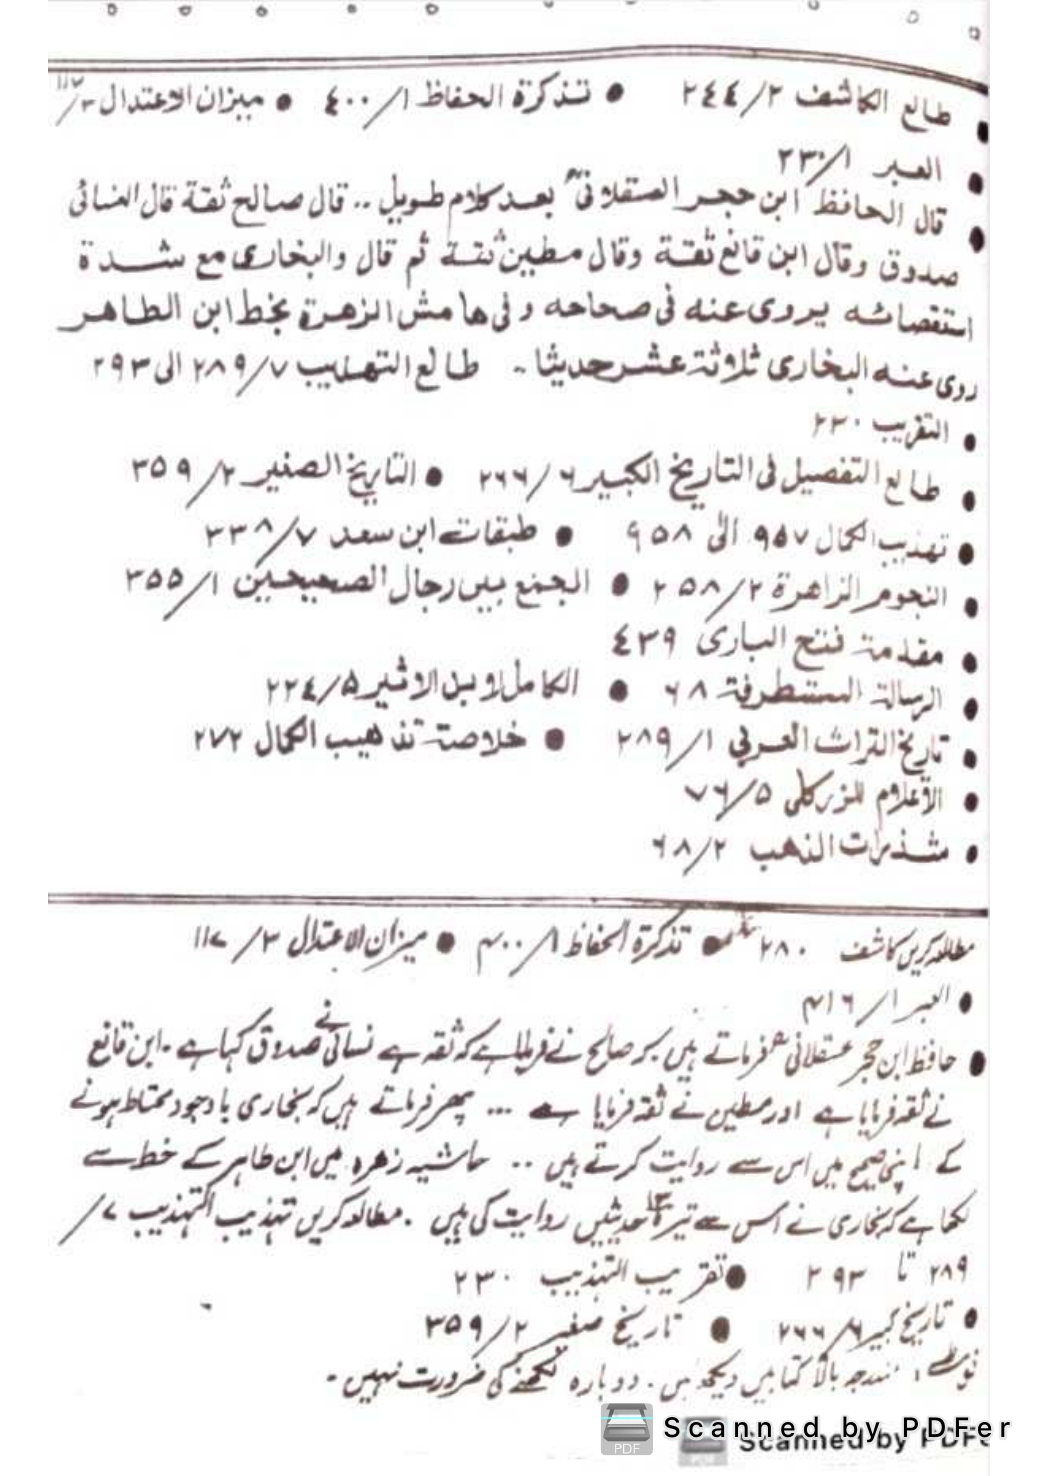 ● طالع الكاشف ٢/٢٤٤ ● تذكرة الحفاظ ١/٤٠٠ ● ميزان الاعتدال ٣/١١٧
● العبر ١/٢٣٠
● قال الحافظ ابن حجر العسقلانی بعد كلام طويل .. قال صالح ثقة قال النسائی
صدوق وقال ابن قانع ثقة وقال مطين ثقة ثم قال والبخاری مع شدة
استقصائه يروی عنه فی صحاحه و فی هامش الزهرة بخط ابن الطاهر
روی عنه البخاری ثلاثة عشر حديثا .. طالع التهذيب ٧/٢٨٩ الی ٢٩٣
● التقريب ٢٣٠
● طالع التفصيل فی التاريخ الكبير ٦/٢٦٦ ● التاريخ الصغير ٢/٣٥٩
● تهذيب الكمال ٩٥٧ الی ٩٥٨ ● طبقات ابن سعد ٧/٣٣٨
● النجوم الزاهرة ٢/٢٥٨ ● الجمع بين رجال الصحيحين ١/٣٥٥
● مقدمة فتح الباری ٤٣٩
● الرسالة المستطرفة ٦٨ ● الكامل لابن الاثير ٥/٢٢٤
● تاريخ التراث العربی ١/٢٨٩ ● خلاصة تذهيب الكمال ٢٧٢
● الأعلام للزركلی ٥/٧٦
● شذرات الذهب ٢/٦٨
مطالعہ کریں کاشف ۲۸۰ ● تذکرۃ الحفاظ ۱/۴۰۰ ● میزان الاعتدال ۳/۱۱۷
● العبر ۱/۴۱۶
● حافظ ابن حجر عسقلانی فرماتے ہیں کہ صالح نے فرمایا ہے کہ ثقہ ہے نسائی نے صدوق کہا ہے ۔ ابن قانع
نے ثقہ فرمایا ہے اور مطین نے ثقہ فرمایا ہے ... پھر فرماتے ہیں کہ بخاری باوجود محتاط ہونے
کے اپنی صحیح میں اس سے روایت کرتے ہیں .. حاشیہ زھرہ میں ابن طاہر کے خط سے
لکھا ہے کہ بخاری نے اس سے تیرہ ۱۳ حدیثیں روایت کی ہیں . مطالعہ کریں تہذیب التہذیب ۷/
۲۸۹ تا ۲۹۳ ● تقریب التہذیب ۲۳۰
● تاریخ کبیر ۶/۲۶۶ ● تاریخ صغیر ۲/۳۵۹
نوٹ : مندجہ بالا کتابیں دیکھو بس . دوبارہ لکھنے کی ضرورت نہیں -
Scanned by PDFer
Scanned by PDFe